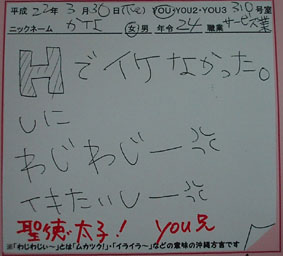 平成22年3月30日(火)YOU・YOU2・YOU3 310号室
ニックネーム かずよ 女 男 年令24 職業 サービス業
HでイケなかったI。
しに
わじわじーって
イキたいしーって
聖徳太子! YOU兄
※「わじわじぃ~」とは「ムカツク!」・「イライラ~」などの意味の沖縄方言です